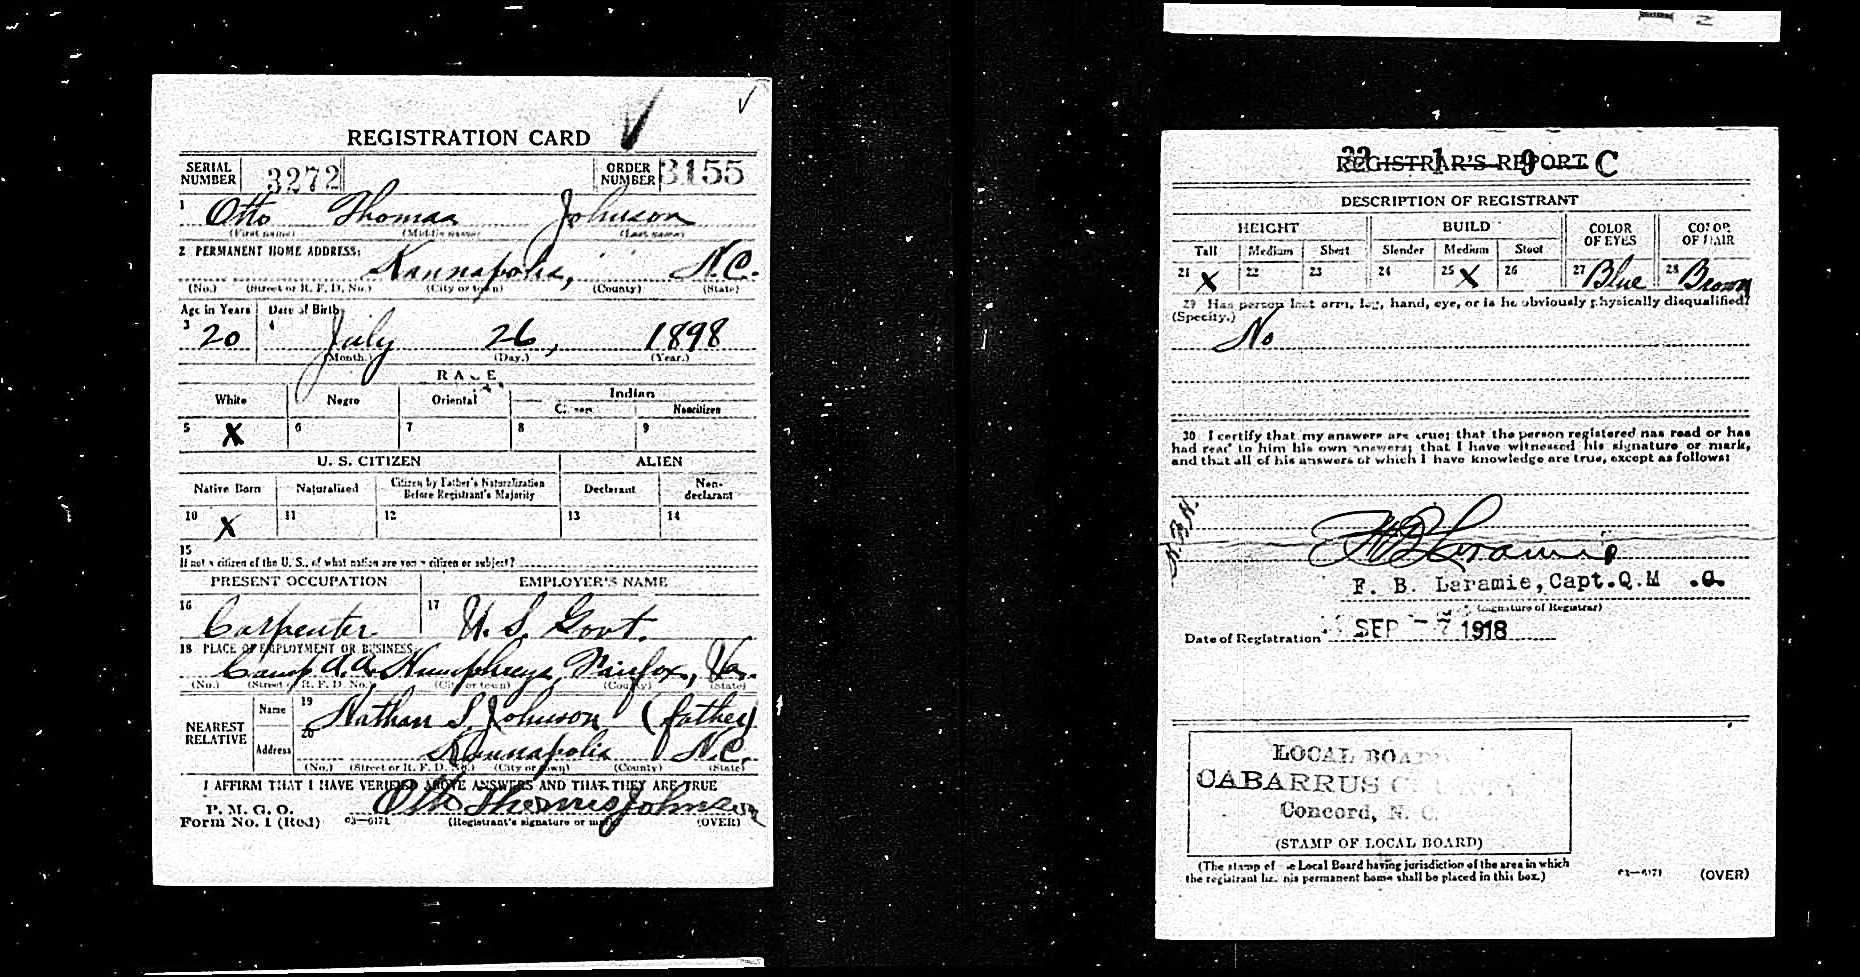 REGISTRATION CARD
SERIAL NUMBER 3272 ORDER NUMBER 3155
1 Otto Thomas Johnson
(First name) (Middle name) (Last name)
2 PERMANENT HOME ADDRESS:
Kannapolis, N.C.
(No.) (Street or R. F. D. No.) (City or town) (County) (State)
Age in Years Date of Birth
3 20 4 July 26, 1898
(Month.) (Day.) (Year.)
RACE
White Negro Oriental Indian
Citizen Noncitizen
5 X 6 7 8 9
U. S. CITIZEN ALIEN
Native Born Naturalized Citizen by Father's Naturalization Before Registrant's Majority Declarant Non-declarant
10 X 11 12 13 14
15
If not a citizen of the U. S., of what nation are you a citizen or subject?
PRESENT OCCUPATION EMPLOYER'S NAME
16 Carpenter 17 U. S. Govt.
18 PLACE OF EMPLOYMENT OR BUSINESS:
Camp A. A. Humphreys, Fairfax, Va.
(No.) (Street or R. F. D. No.) (City or town) (County) (State)
NEAREST RELATIVE
Name 19 Nathan S. Johnson (father)
Address 20 Kannapolis N.C.
(No.) (Street or R. F. D. No.) (City or town) (County) (State)
I AFFIRM THAT I HAVE VERIFIED ABOVE ANSWERS AND THAT THEY ARE TRUE
P. M. G. O.
Form No. 1 (Red) 03—6171 Otto Thomas Johnson
(Registrant's signature or mark) (OVER)
REGISTRAR'S REPORT
1 9 C
DESCRIPTION OF REGISTRANT
HEIGHT BUILD COLOR OF EYES COLOR OF HAIR
Tall Medium Short Slender Medium Stout
21 X 22 23 24 25 X 26 27 Blue 28 Brown
29 Has person lost arm, leg, hand, eye, or is he obviously physically disqualified?
(Specify.)
No
30 I certify that my answers are true; that the person registered has read or has
had read to him his own answers; that I have witnessed his signature or mark,
and that all of his answers of which I have knowledge are true, except as follows:
F B Laramie
F. B. Laramie, Capt. Q.M .C.
(Signature of Registrar)
Date of Registration SEP - 7 1918
LOCAL BOARD
CABARRUS COUNTY
Concord, N. C.
(STAMP OF LOCAL BOARD)
(The stamp of the Local Board having jurisdiction of the area in which
the registrant has his permanent home shall be placed in this box.)
03—6171 (OVER)